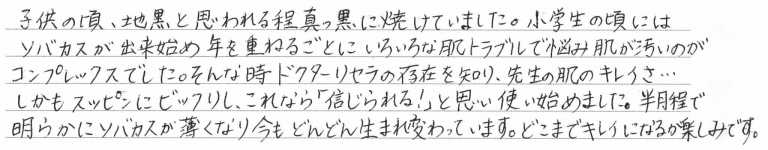 子供の頃、地黒と思われる程真っ黒に焼けていました。小学生の頃には
ソバカスが出来始め年を重ねるごとにいろいろな肌トラブルで悩み肌が汚いのが
コンプレックスでした。そんな時ドクターリセラの存在を知り、先生の肌のキレイさ…
しかもスッピンにビックリし、これなら「信じられる！」と思い使い始めました。半月程で
明らかにソバカスが薄くなり今もどんどん生まれ変わっています。どこまでキレイになるか楽しみです。